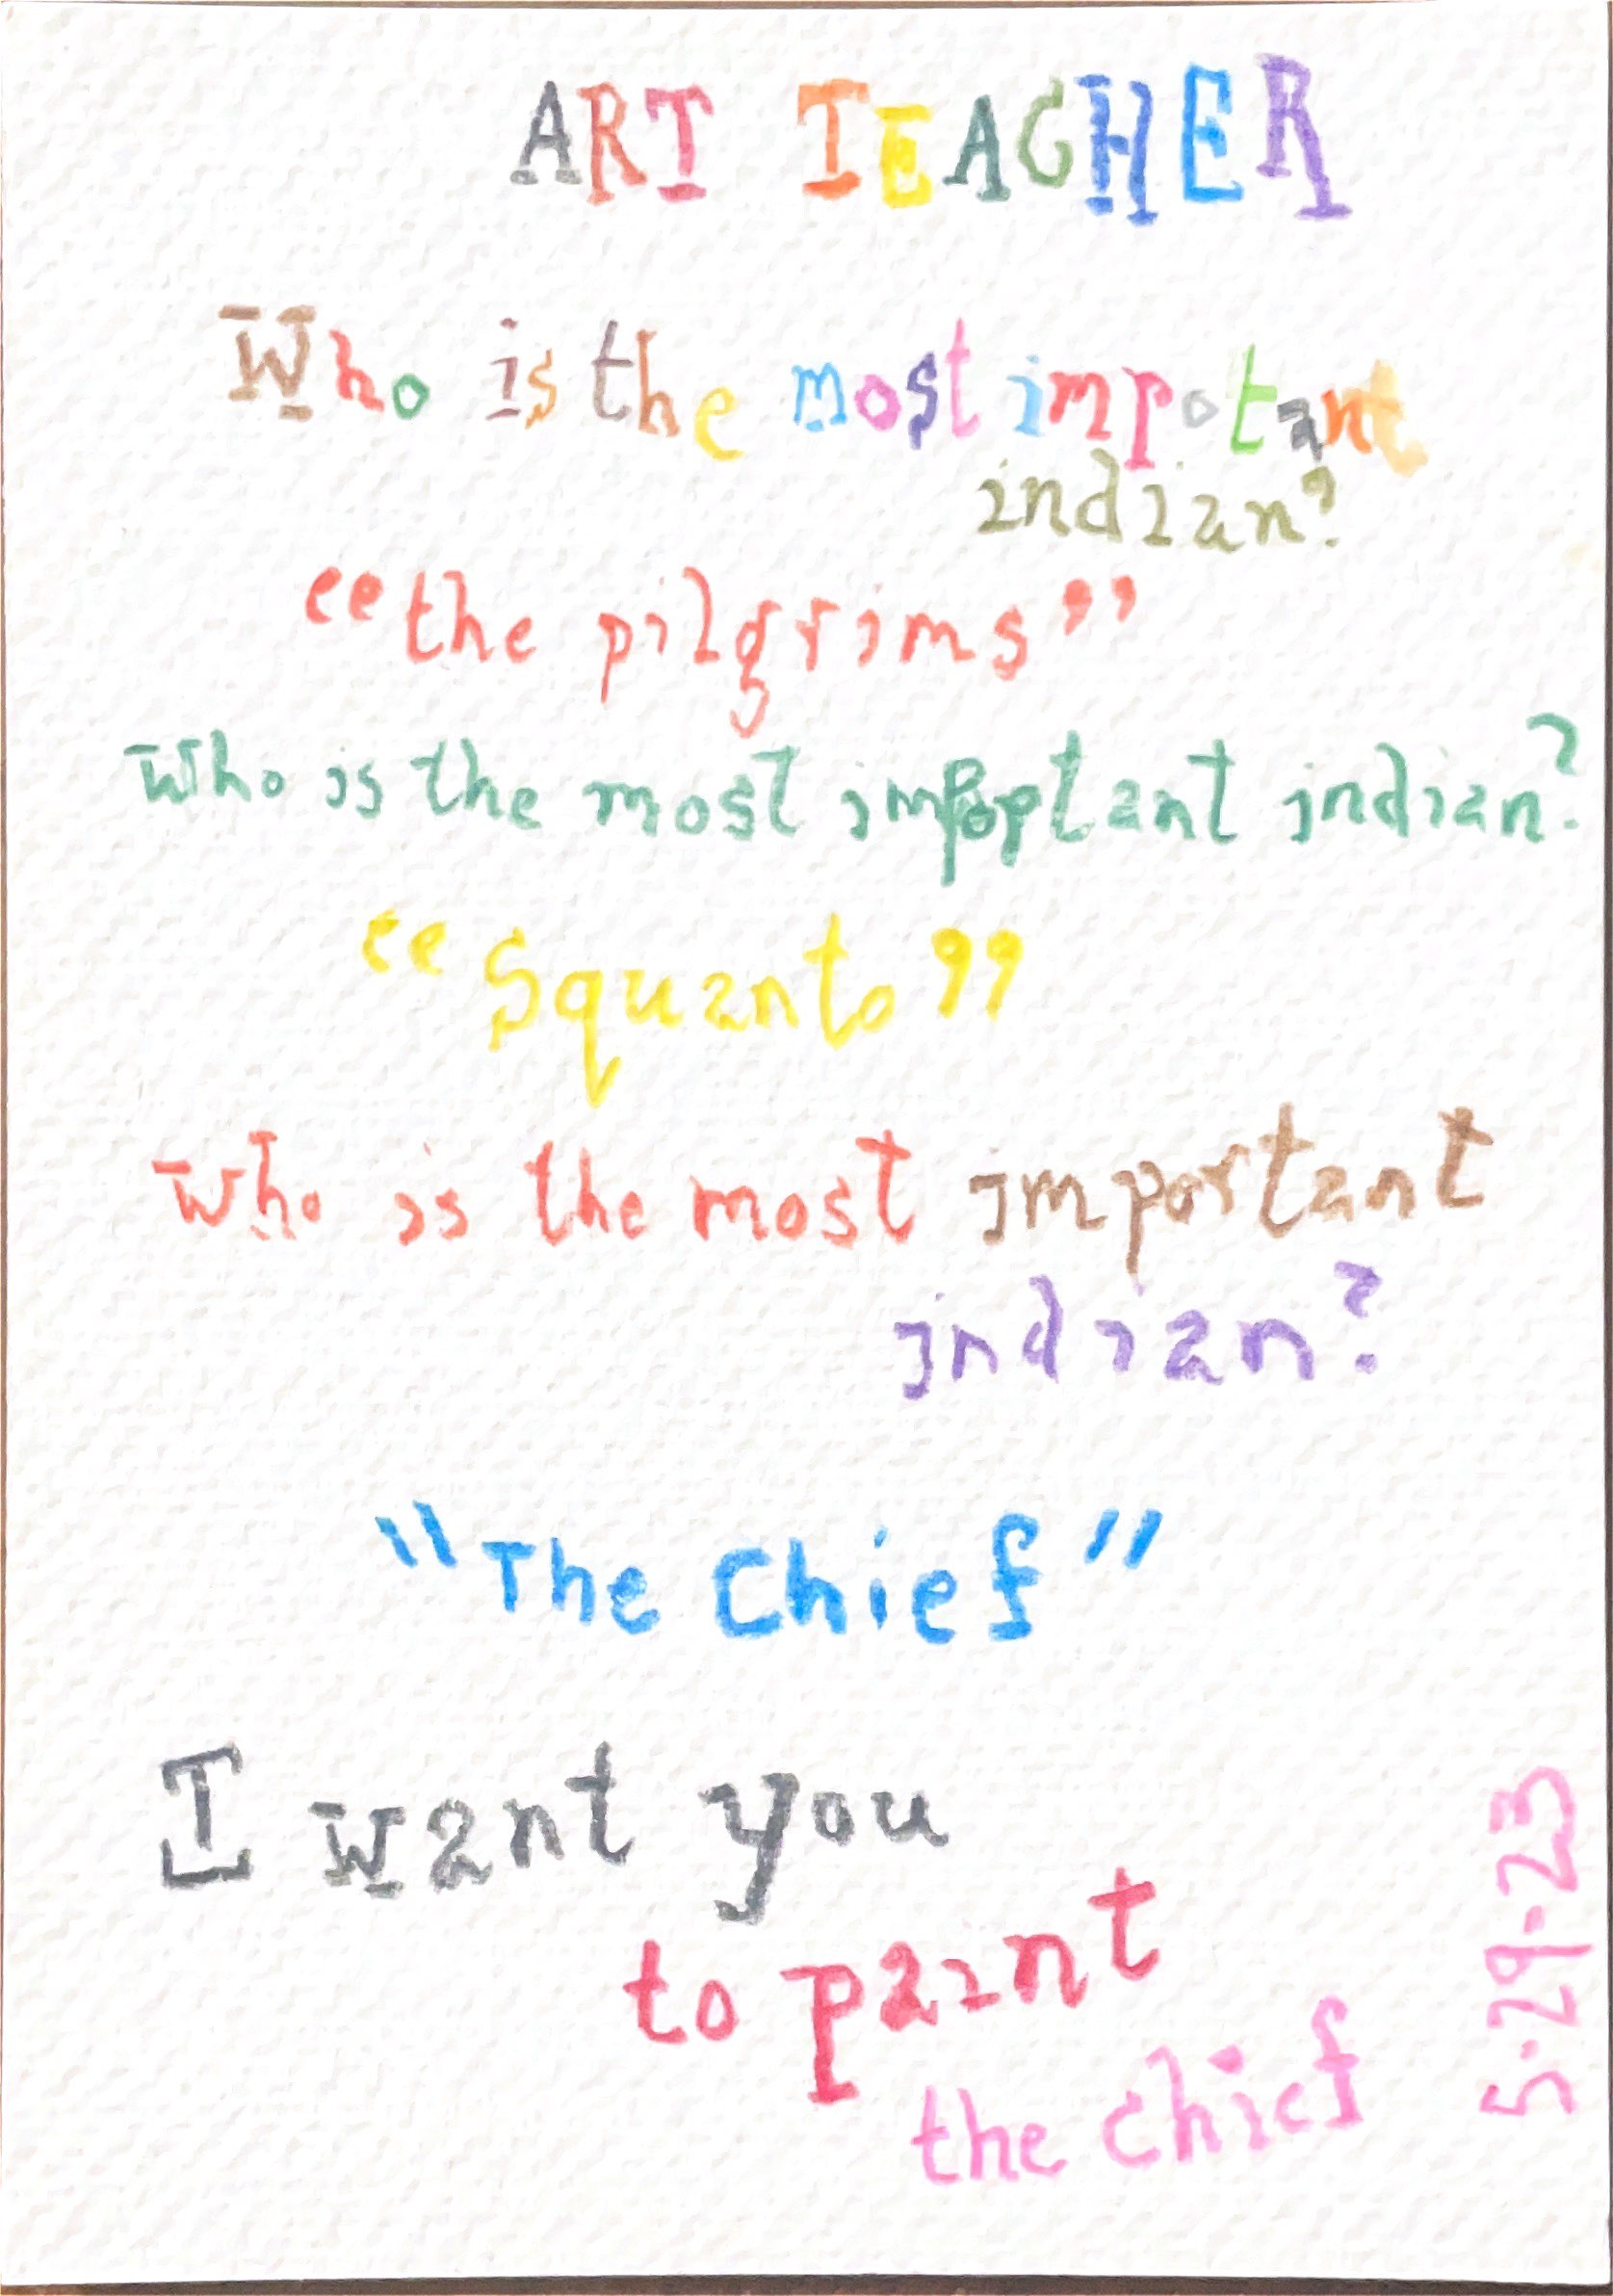 ART TEACHER
Who is the most impotant
indian?
“the pilgrims”
Who is the most impoptant indian?
“Squanto”
Who is the most important
indian?
"The Chief"
I want you
to paint
the chief
5.29.23